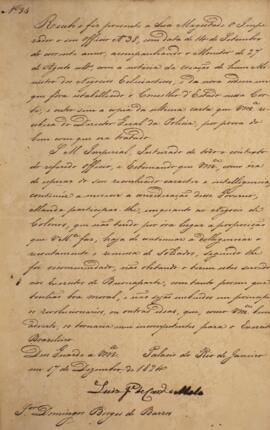 Nº 34
Recebi e foi presente a Sua Magestade O Imperador o seu officio Nº 31, com data de 14 de Setembro
do corrente anno, acompanhando o Monitor de 27
de Agosto com a noticia da creação de hum Ministro dos Negocios Ecclesiasticos, e da nova ordem em
que fora estabelecido o Conselho d'Estado nessa Corte, e outro sim a copia da carta que Vmce
recebeu do Director Geral da Policia, por prova do
bom com que he tratado
S. M. Imperial, Inteirado de todo o contexto
do referido officio, e Estimando que Vmce, como era
de esperar do seu reconhecido caracter e intelligencia,
continue a merecer a consideração desse Governo,
Manda participar-lhe, emquanto ao Negocio de
Colonos, que não tendo por ora lugar a proposição
que Vmce faz, haja de continuar a diligenciar o
recrutamento e remessa de Soldados, segundo lhe
foi recommendado, não obstando o terem estes servido
nos Exercitos de Buonaparte, com tanto porem que
tenhão boa moral, e não sejão imbuidos em principios
revolucionarios, ou outras idéas, que, como Vmce bem
adverte, os tornaria mui incompetentes para o Exercito
Brasileiro.
Deos Guarde a Vmce Palacio do Rio de Janeiro
em 17 de Dezembro de 1824
Luiz Jé de Carvº e Mello
Sr Domingos Borges de Barros